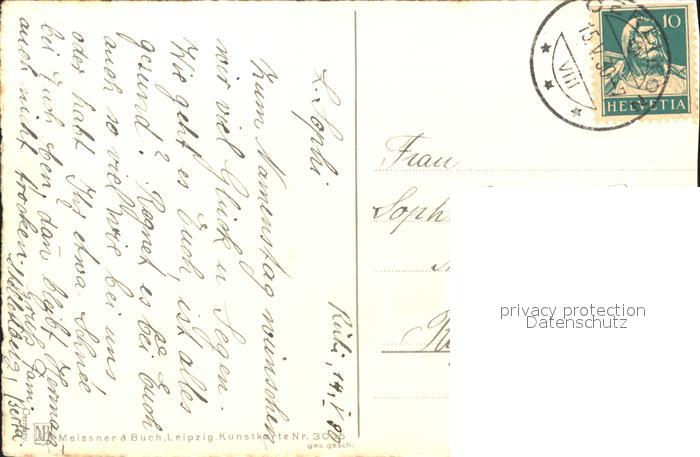 Rüti, 14. V 30
L. Sophi
Zum Namenstag wünschen
wir viel Glück u Segen.
Wie geht es Euch, ist alles
gesund? Regnet es bei Euch
auch so viel wie bei uns
oder habt Ihr etwa Schnee
bei Euch oben, dan bleibt Herman
auch nicht trocken.
Gruss Fam.
Frau
Soph
10
HELVETIA
15.V.30
VIII
privacy protection
Datenschutz
Meissner & Buch, Leipzig. Kunstkarte Nr. 30
ges. gesch.